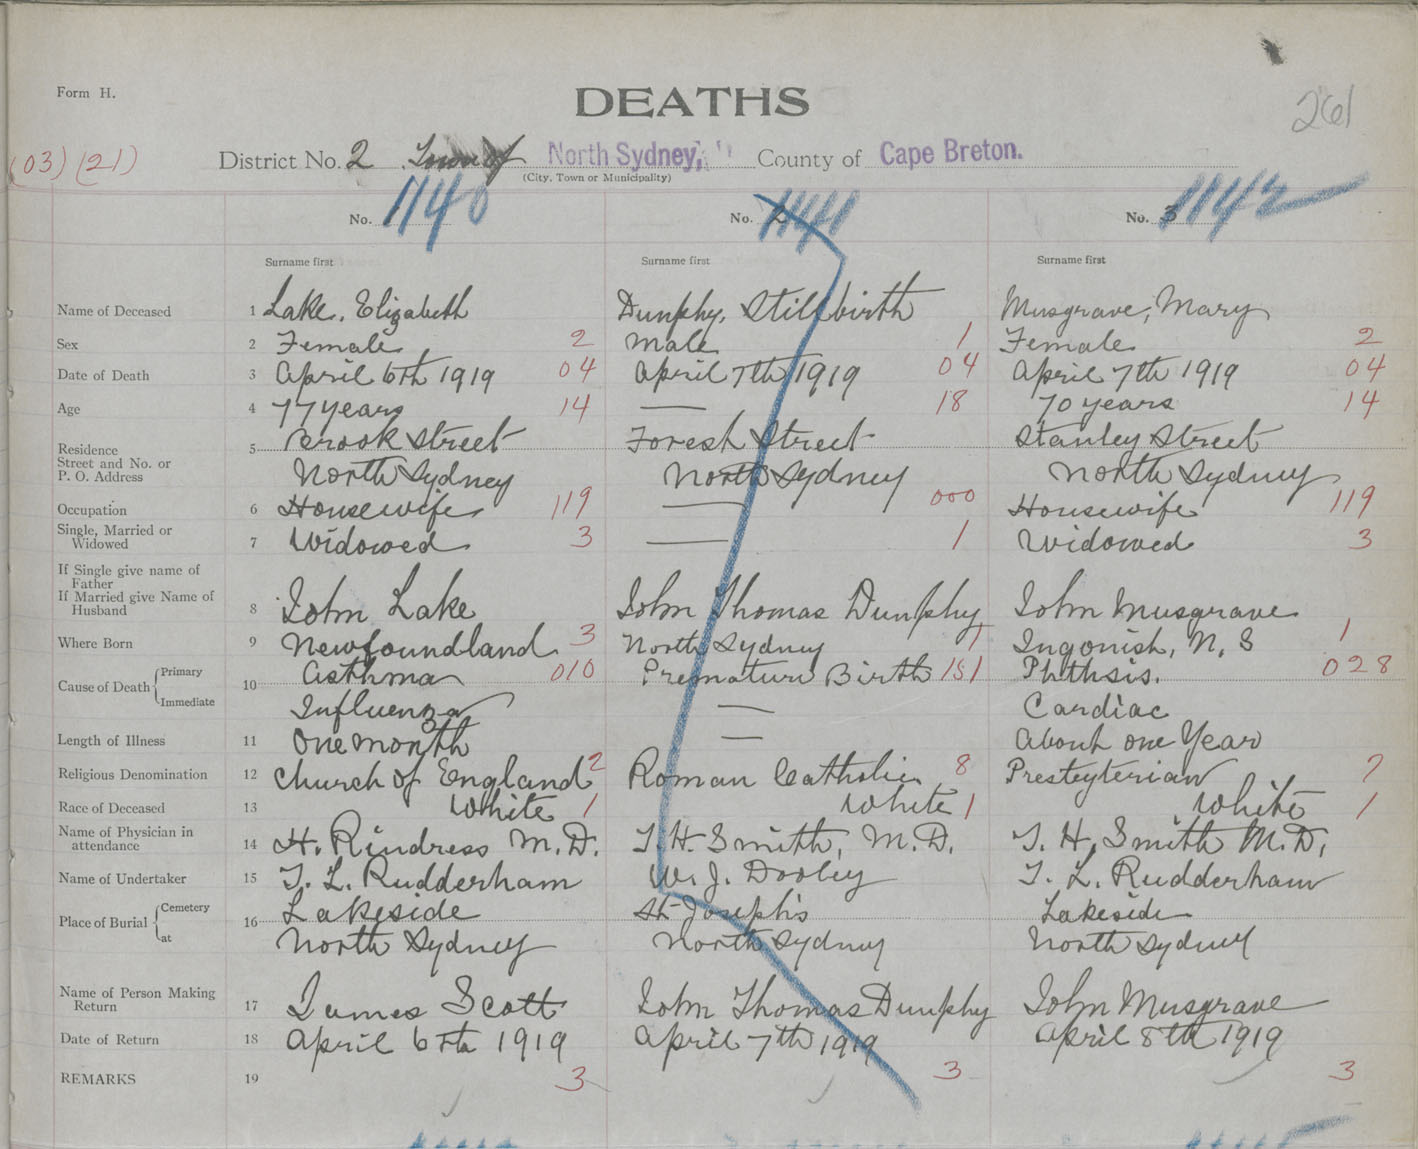 Form H.
DEATHS
261
(03) (21)
District No. 2 Town of North Sydney, County of Cape Breton.
(City, Town or Municipality)
No. 1140 No. 2 1141 No. 3 1142
Surname first Surname first Surname first
Name of Deceased 1 Lake, Elizabeth Dunphy, Stillbirth Musgrave, Mary
Sex 2 Female 2 Male 1 Female 2
Date of Death 3 April 6th 1919 04 April 7th 1919 04 April 7th 1919 04
Age 4 77 years 14 — 18 70 years 14
Residence 5 Brook Street Forest Street Stanley Street
Street and No. or
P. O. Address North Sydney North Sydney North Sydney
Occupation 6 Housewife 119 — 000 Housewife 119
Single, Married or
Widowed 7 Widowed 3 — 1 Widowed 3
If Single give name of
Father
If Married give Name of
Husband 8 John Lake John Thomas Dunphy John Musgrave
Where Born 9 Newfoundland 3 North Sydney 1 Ingonish, N. S 1
Cause of Death Primary 10 Asthma 010 Premature Birth 151 Phthsis. 028
Immediate Influenza — Cardiac
Length of Illness 11 One month — About one Year
Religious Denomination 12 Church of England 2 Roman Catholic 8 Presteyterian 7
Race of Deceased 13 White 1 White 1 White 1
Name of Physician in
attendance 14 H. Rindress M.D. T. H. Smith, M.D. T. H. Smith M.D.
Name of Undertaker 15 T. L. Rudderham W. J. Dooley T. L. Rudderham
Place of Burial Cemetery 16 Lakeside St Joseph's Lakeside
at North Sydney North Sydney North Sydney
Name of Person Making
Return 17 James Scott John Thomas Dunphy John Musgrave
Date of Return 18 April 6th 1919 April 7th 1919 April 8th 1919
REMARKS 19 3 3 3